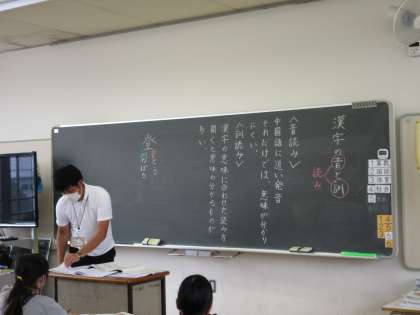 漢字の音と訓
読み
〈音読み〉
中国語に近い発音
それだけでは、意味が分かり
にくい。
〈訓読み〉
漢字の意味に合わせた読み方
聞くと意味の分かるものが
多い。
登